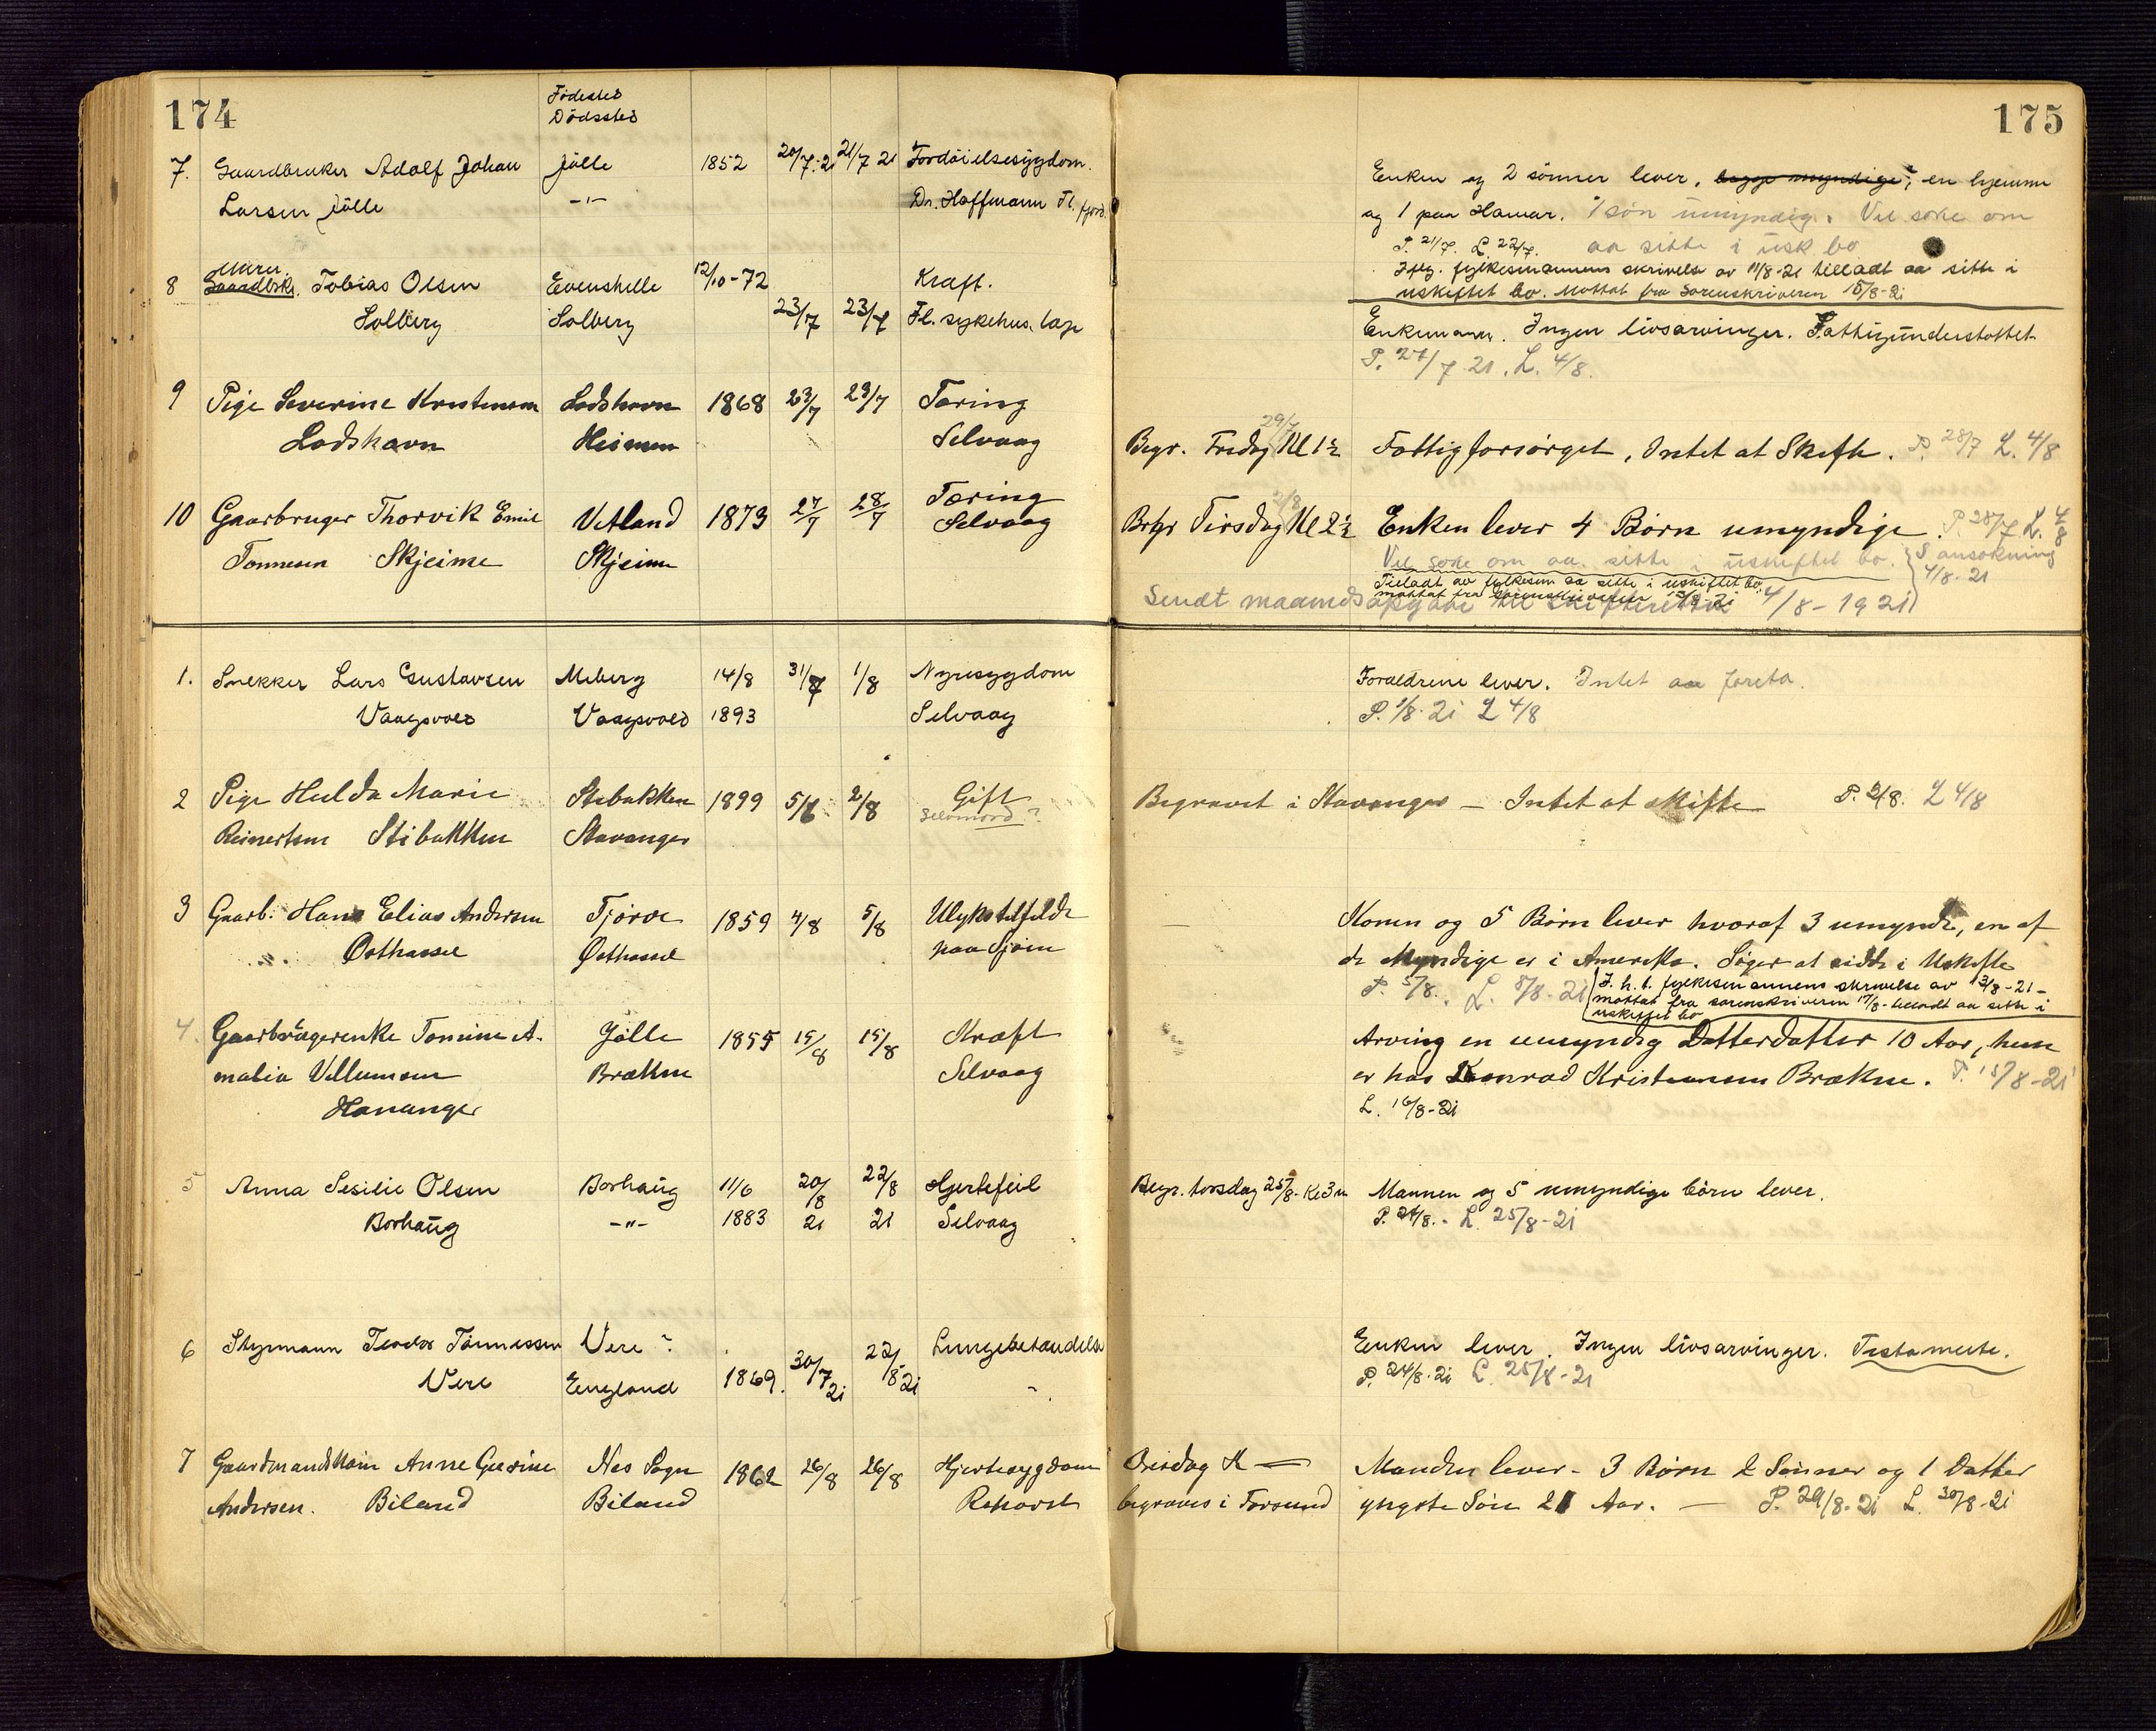 174
Födested
Dödssted
7. Gaardbruker Adolf Johan Jölle 1852 20/7.21 21/7 21 Fordöielsesygdom.
Larsen Jölle -"- Dr. Hoffmann Fl. fjord.
Murer
8 Gaardbrkr. Tobias Olsen Evenshelle 12/10-72 Kræft.
Solberg Solberg 23/7 23/7 Fl. sykehus. læge
9 Pige Severine Kristensen Lodshavn 1868 23/7 23/7 Tæring
Lodshavn Heimen Selvaag
10 Gaarbruger Thorvik Emil Vetland 1873 27/7 28/7 Tæring Selvaag
Tønnesen Skjeime Skjeime
1. Snekker Lars Gustavsen Meberg 14/8 31/7 1/8 Nyresygdom
Vaagsvold Vaagsvold 1893 Selvaag
2 Pige Hulda Marie Stibakken 1899 5/6 2/8 Gift
Reinertsen Stibakken Stavanger Selvmord?
3 Gaarb. Hans Elias Andersen Tjörve 1859 4/8 5/8 Ulykstilfelde
Østhassel Østhassel paa Sjøen
4. Gaarbrügerenke Tomine A- Jølle 1855 15/8 15/8 Kræft
malia Villumsen Brækne Selvaag
Hananger
5 Anna Sesilie Olsen Borhaüg 11/6 20/8 22/8 Hjertefeil
Borhaüg -"- 1883 21 21 Selvaag
6 Styrmann Teodor Tönnessen Vere ? Lungebetændelse
Vere England 1869. 30/7 21 22/8 21
7 Gaardmandskone Anne Gurine Nes Sogn 1862 26/8 26/8 Hjertesygdom
Andersen. Biland Biland
175
Enken og 2 sönner lever, begge myndige, en hjemme
og 1 paa Hamar. 1 sön ümyndig. Vil söke om
P. 21/7. L 22/7. aa sitte i üsk bo
Ifлg. fylkesmannens skrivelse av 11/8-21 tilladt aa sitte i
uskiftet bo. Mottat fra Sorenskriveren 15/8-21
Enkemann. Ingen livsarvinger. Fattigünderstöttet.
P. 27/7 21. L. 4/8.
29/7
Begr. Fredag Kl 1½ Fattigforsörget, Intet at Skifte. P. 28/7 L. 4/8
2/8
Begr Tirsdag Kl 2½ Enken lever 4 Børn umyndige. P 28/7 L. 4/8
Vil söke om aa sitte i üskiftet bo. S. ansökning 4/8-21
Tilladt av fylkesm aa sitte i uskiftet bo,
mottat fra Sorenskriveren
Sendt maanedsopgave til skifteretten 4/8-1921
Foraeldrene lever. Intet aa foreta.
P. 1/8. 21 L 4/8
Begravet i Stavanger — Intet at skifte P. 2/8. L 4/8
Konen og 5 Børn lever hvoraf 3 umyndi, en af
de Myndige er i Amerika. Søger at sidde i Uskifte
P. 5/8. L. 8/8-21 I. h. t. fylkesmannens skrivelse av 13/8-21-
mottat fra sorenskriveren 17/8- tilladt aa sitte i
uskiftet bo
Arving en umyndig Datterdatter 10 Aar, hun
er hos Konrad Kristensen Brækne. P. 15/8-21
L. 16/8-21
Begr. torsdag 25/8- Kl 3 Mannen og 5 umyndige börn lever.
P. 24/8. - L. 25/8-21
Enken lever. Ingen livsarvinger. Testamente.
P. 24/8. 21 L. 25/8-21
Manden lever - 3 Børn 2 Sønner og 1 Datter
begraves i Farsund yngste Søn 21 Aar. — P. 29/8-21 L. 30/8-21